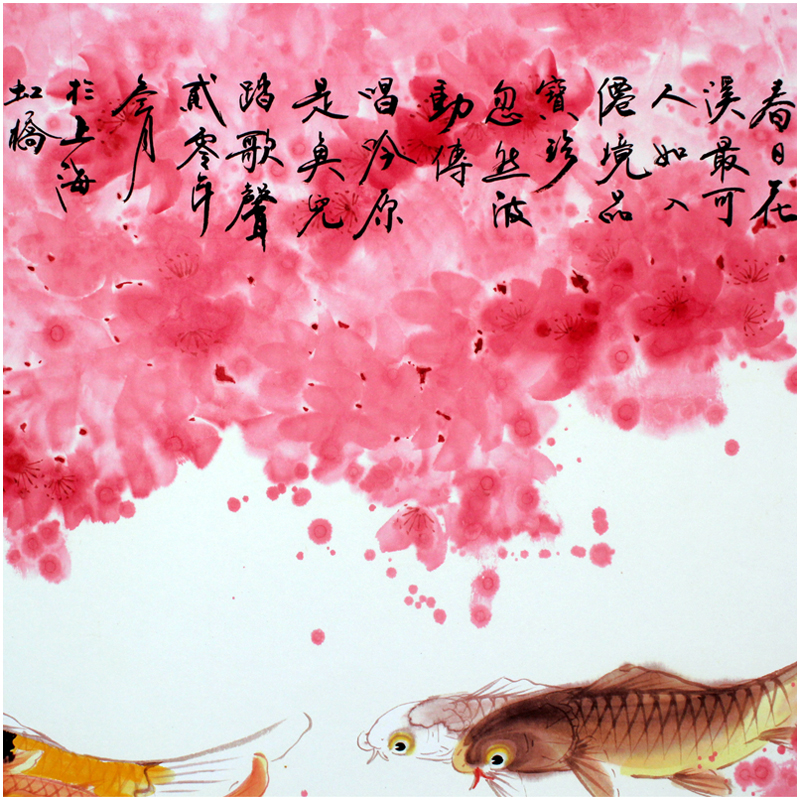 春日花
溪最可
人如入
僊境品
寶珍
忽然波
動傳
唱吟原
是魚兒
踏歌聲
貳零年
叁月
於上海
虹橋